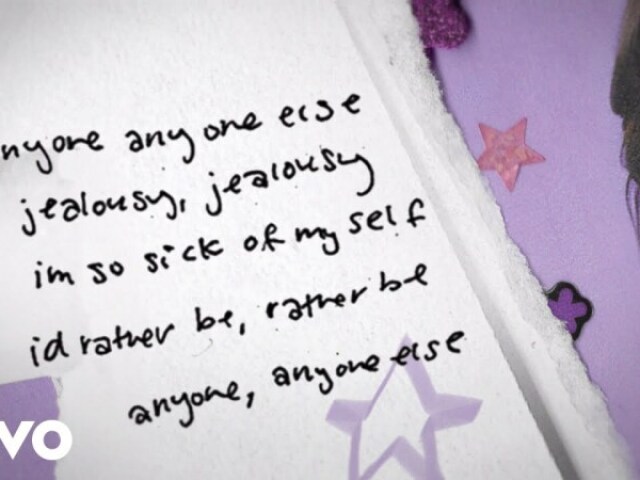 nyone any one else
jealousy, jealousy
im so sick of my self
id rather be, rather be
anyone, anyone else
vo